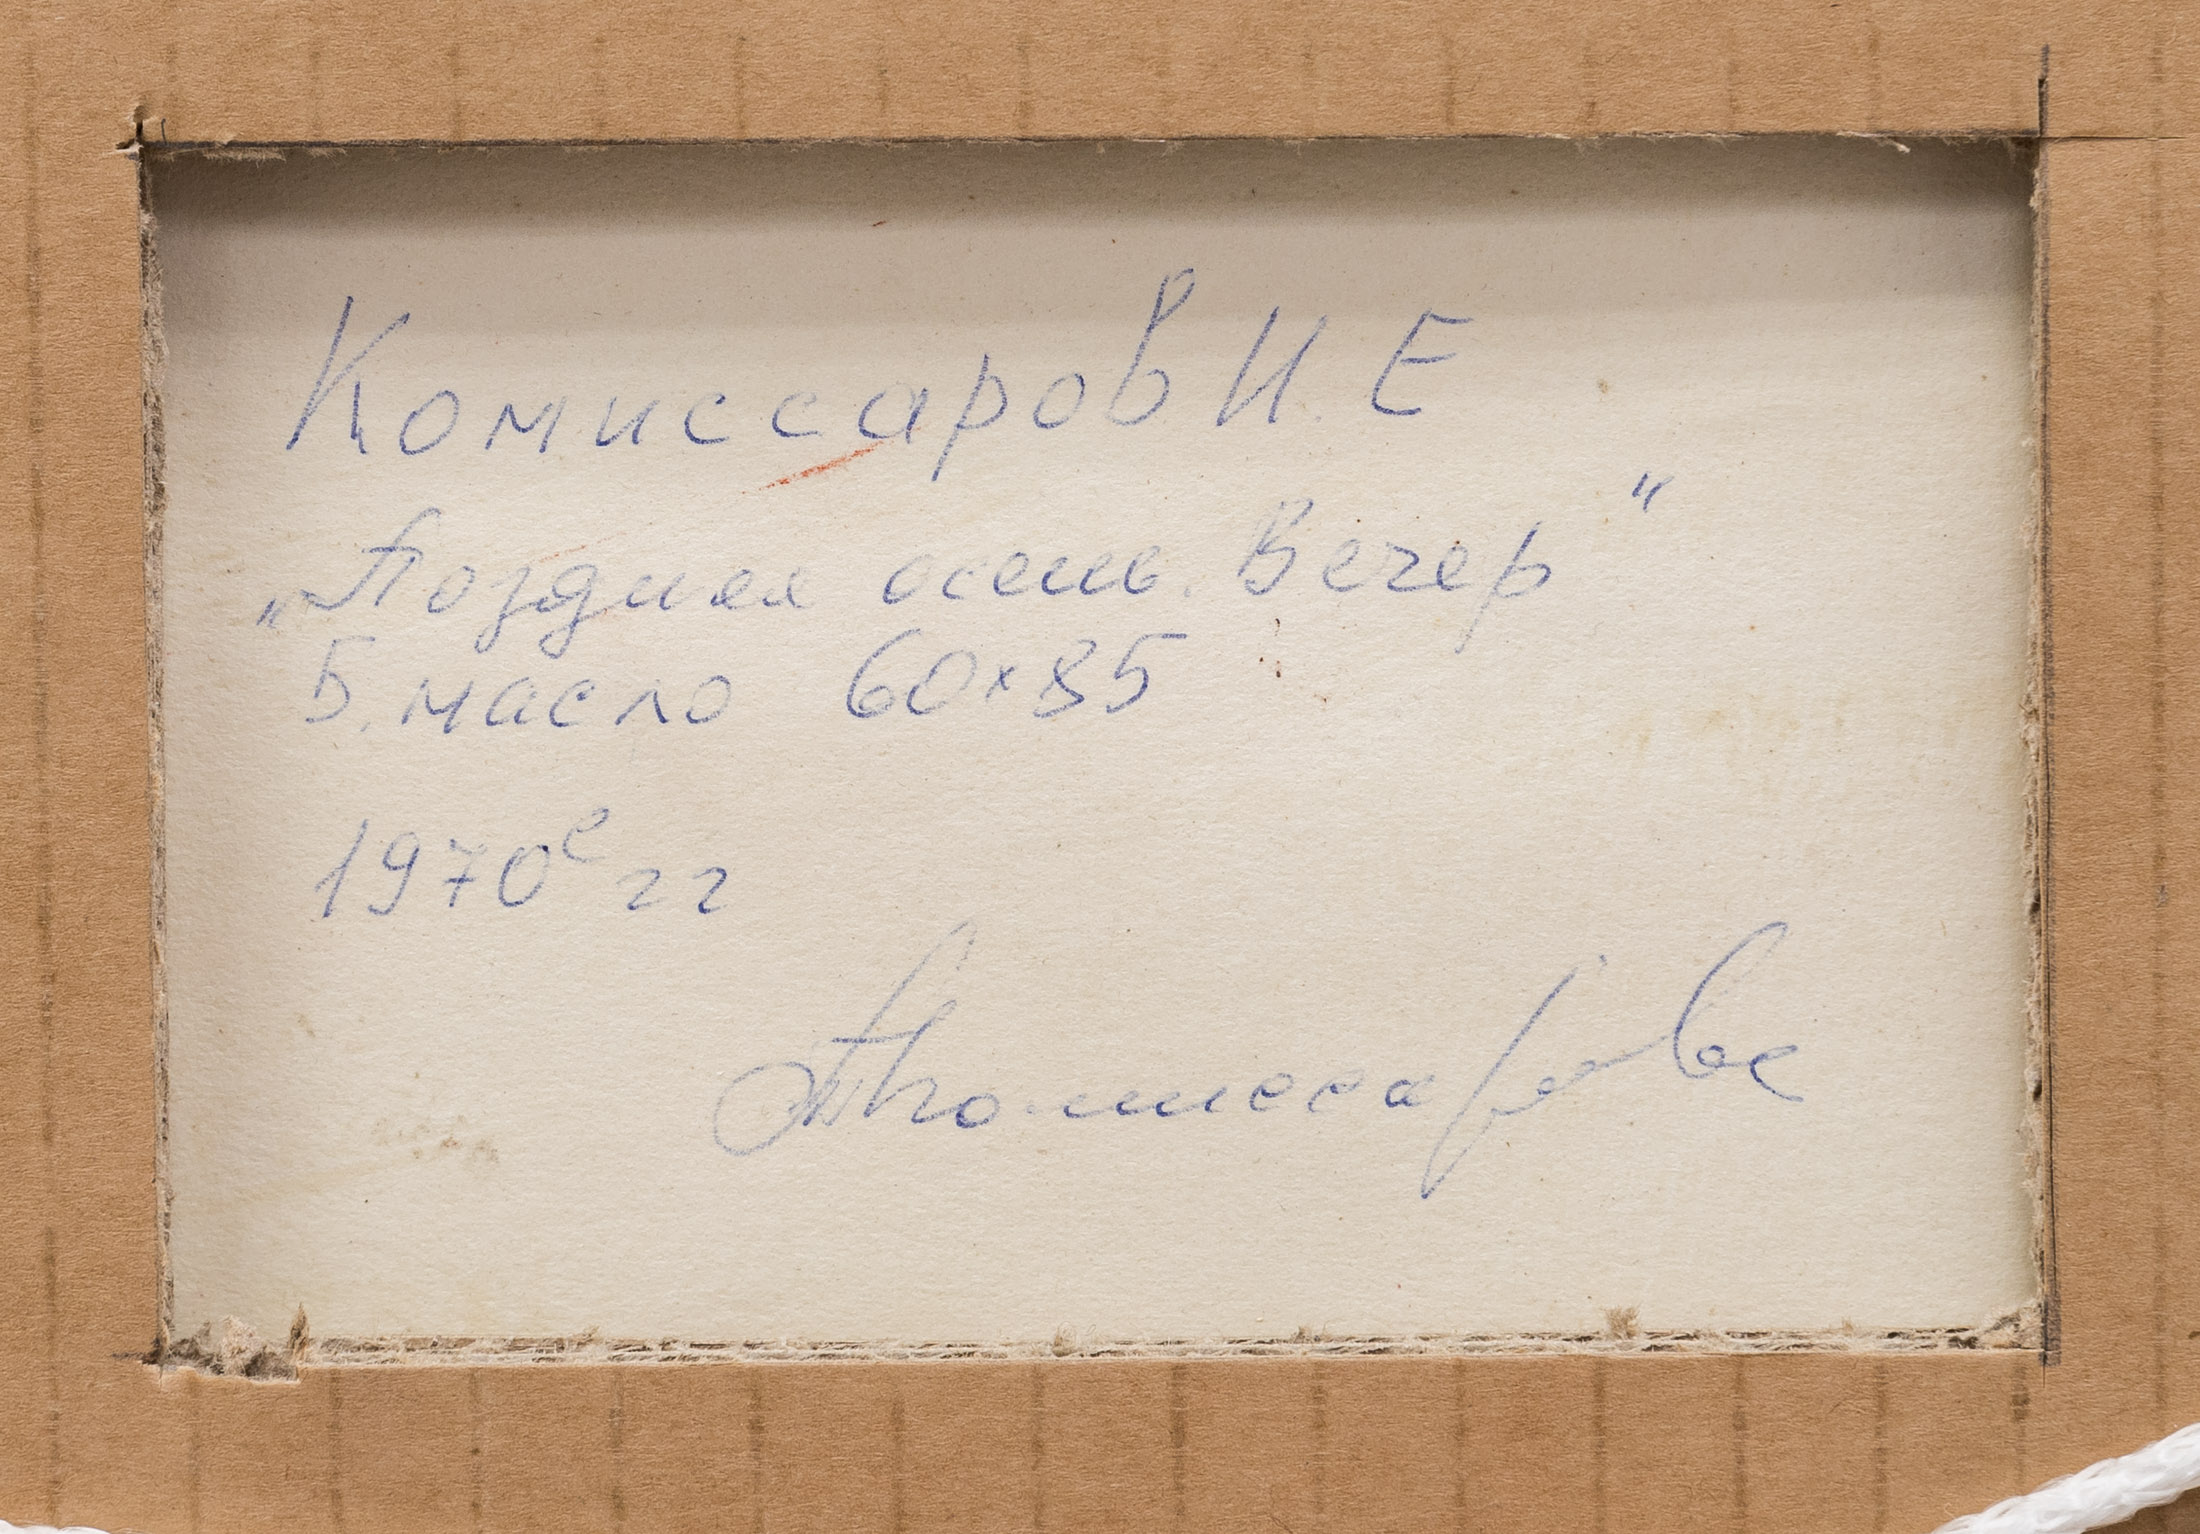 Комиссаров И. Е
„Поздняя осень. Вечер“
Б. масло 60×85
1970е гг
Комиссарова